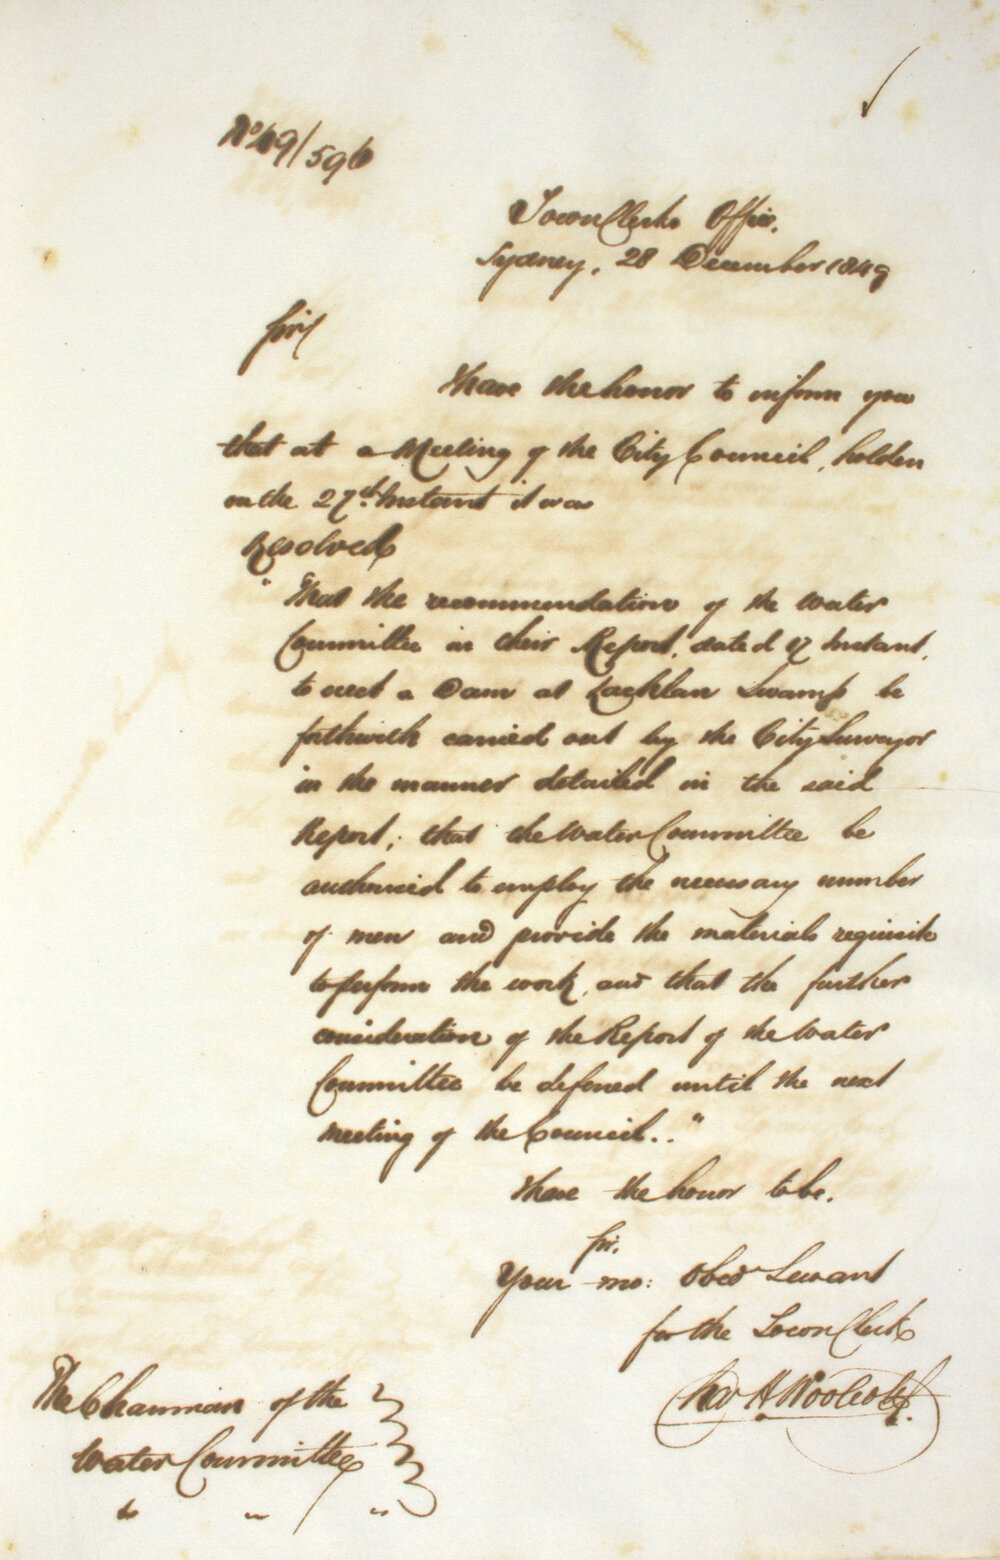 No 49/596
Town Clerks Office,
Sydney, 28 December 1849
Sir,
I have the honor to inform you
that at a Meeting of the City Council, holden
on the 27th Instant it was
Resolved
"That the recommendation of the Water
Committee in their Report, dated 17 Instant,
to erect a Dam at Lachlan Swamp be
forthwith carried out by the City Surveyor
in the manner detailed in the said
Report; that the Water Committee be
authorised to employ the necessary number
of men and provide the materials requisite
to perform the work, and that the further
consideration of the Report of the Water
Committee be deferred until the next
meeting of the Council.."
I have the honor to be.
Sir.
Your mo: Obed Servant
for the Town Clerk
Chas H. Woolcott.
The Chairman of the
Water Committee